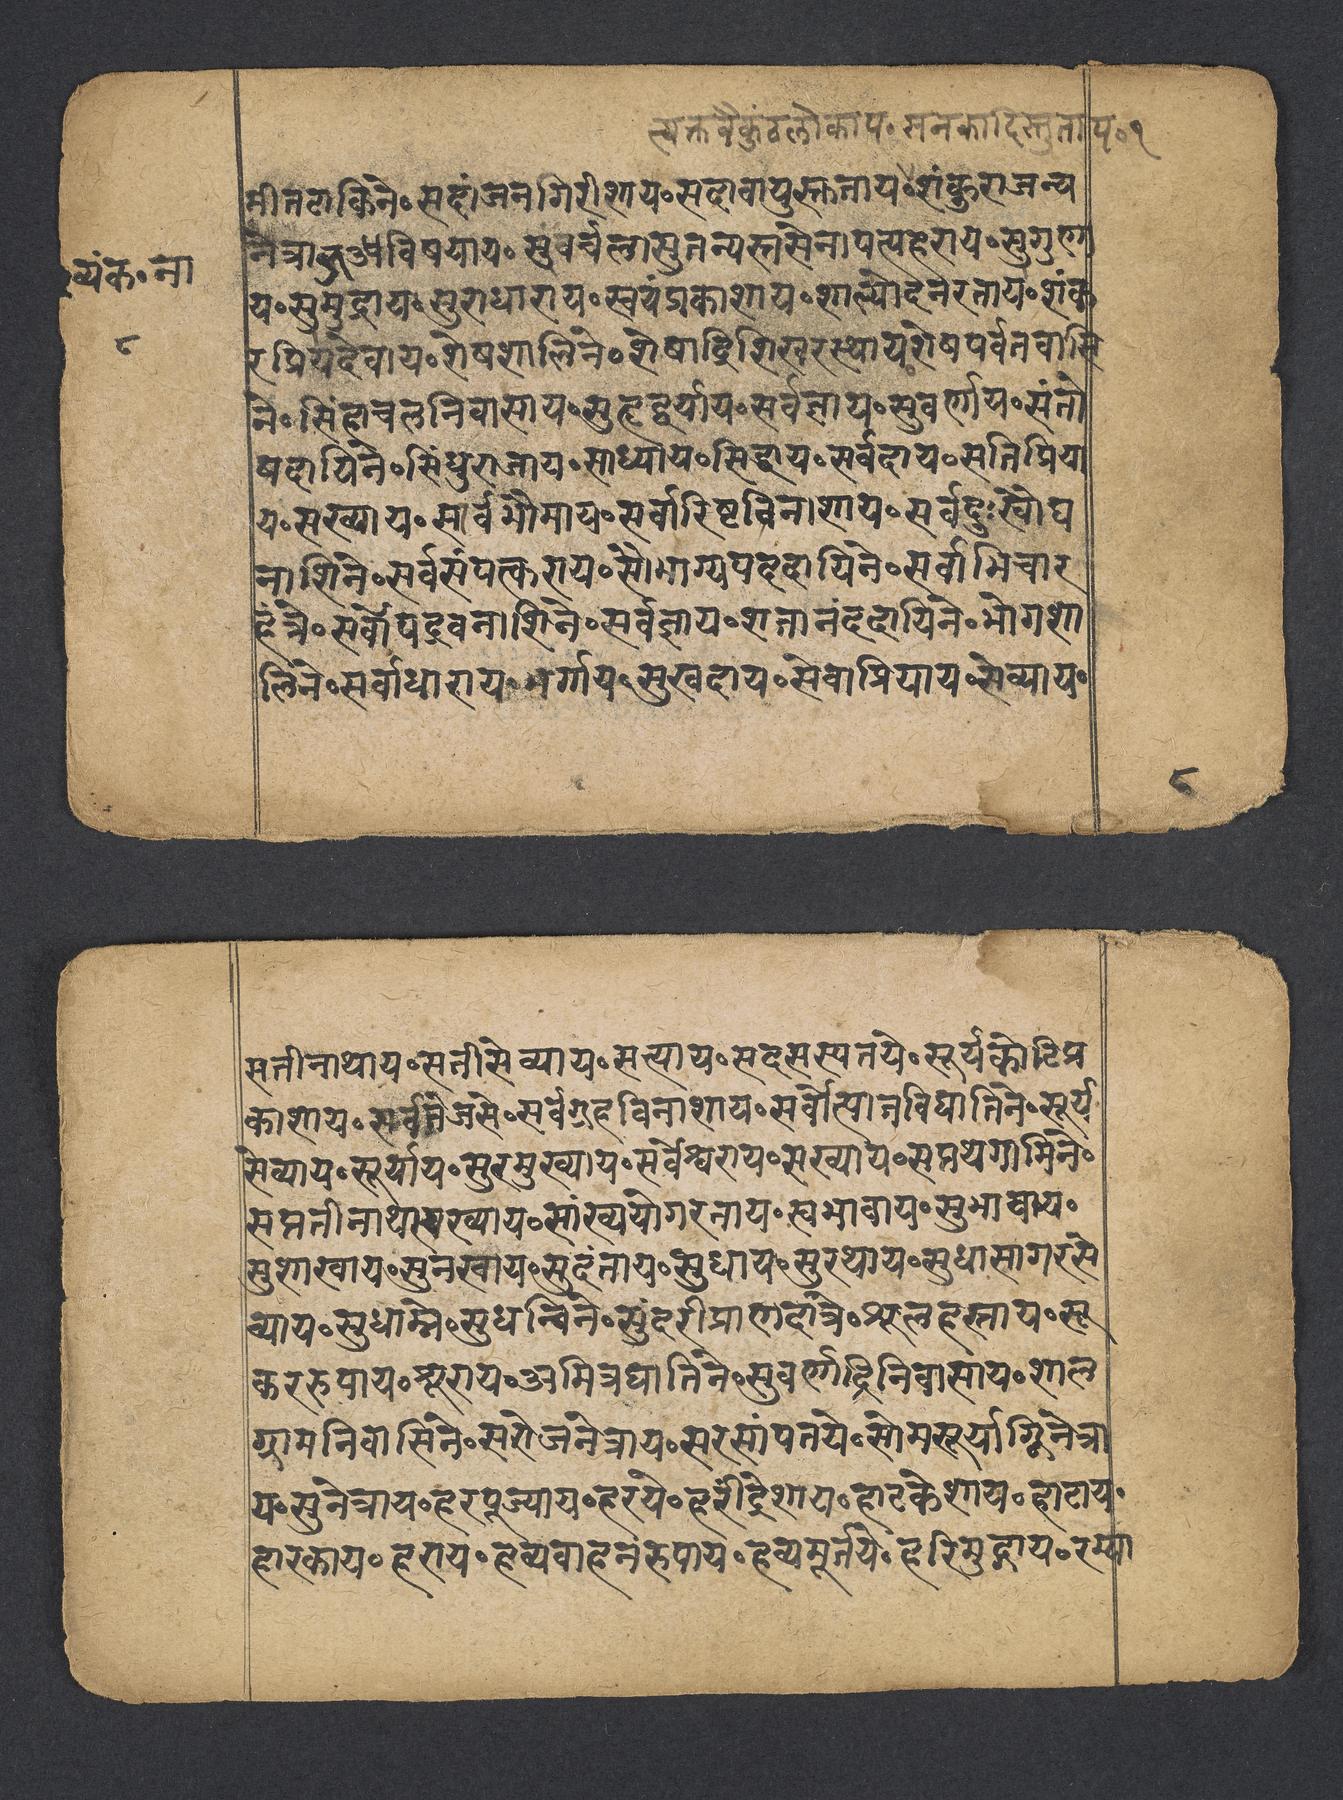 त्यक्तवैकुंठलोकाय॰सनकादिस्तुताय॰१
मीतटाकिने॰सदांजनगिरीशाय॰सदावायुस्तुताय॰शंकुराजन्य
नेत्रा विषयाय॰सुवर्चलासुतन्यस्तसेनापत्यहराय॰सुगुणा
व्यंक॰ना
य॰सुमुद्राय॰सुराधाराय॰स्वयंप्रकाशाय॰शाल्योदनरताय॰शंक
८
रप्रियदेवाय॰शेषशालिने॰शेषाद्रिशिखरस्थाय॰शेषपर्वतवासि
ने॰सिंहाचलनिवासाय॰सुहृद्वर्याय॰सर्वज्ञाय॰सुवर्णाय॰संतो
षदायिने॰सिंधुराजाय॰साध्याय॰सिद्धाय॰सर्वदाय॰सतिप्रिया
य॰सख्याय॰सार्वभौमाय॰सर्वारिष्टविनाशाय॰सर्वदुःखौघ
नाशिने॰सर्वसंपत्कराय॰सौभाग्यपददायिने॰सर्वाभिचार
हंत्रे॰सर्वोपद्रवनाशिने॰सर्वज्ञाय॰शतानंददायिने॰भोगशा
लिने॰सर्वाधाराय॰भर्गाय॰सुखदाय॰सेवाप्रियाय॰सेव्याय॰
८
सतीनाथाय॰सतीसेव्याय॰सत्याय॰सदसस्पतये॰सूर्यकोटिप्र
काशाय॰सर्वतेजसे॰सर्वग्रहविनाशाय॰सर्वोत्पातविघातिने॰सूर्य
सेव्याय॰सूर्याय॰सुरमुख्याय॰सर्वेश्वराय॰सख्याय॰सप्तथेगामिने॰
सप्ततीनाथा ख्याय॰सांख्ययोगरताय॰स्वभावाय॰सुभावाय॰
सुशाखाय॰सुनखाय॰सुदंताय॰सुधाय॰सुरथाय॰सुधासागरसे
व्याय॰सुधाम्ने॰सुधन्विने॰सुंदरीप्राणदात्रे॰शूलहस्ताय॰सू
कररुपाय॰शूराय॰अमित्रघातिने॰सुवर्णाद्रिनिवासाय॰शाल
ग्रामनिवासिने॰सरोजनेत्राय॰सरसांपतये॰सोमसूर्याग्निनेत्रा
य॰सुनेत्राय॰हरपूज्याय॰हरये॰हरींद्रेशाय॰हाटकेशाय॰हाटाय॰
हारकाय॰हराय॰हव्यवाहनरुपाय॰हव्यमूर्तये॰हरिमुद्राय॰रम्या